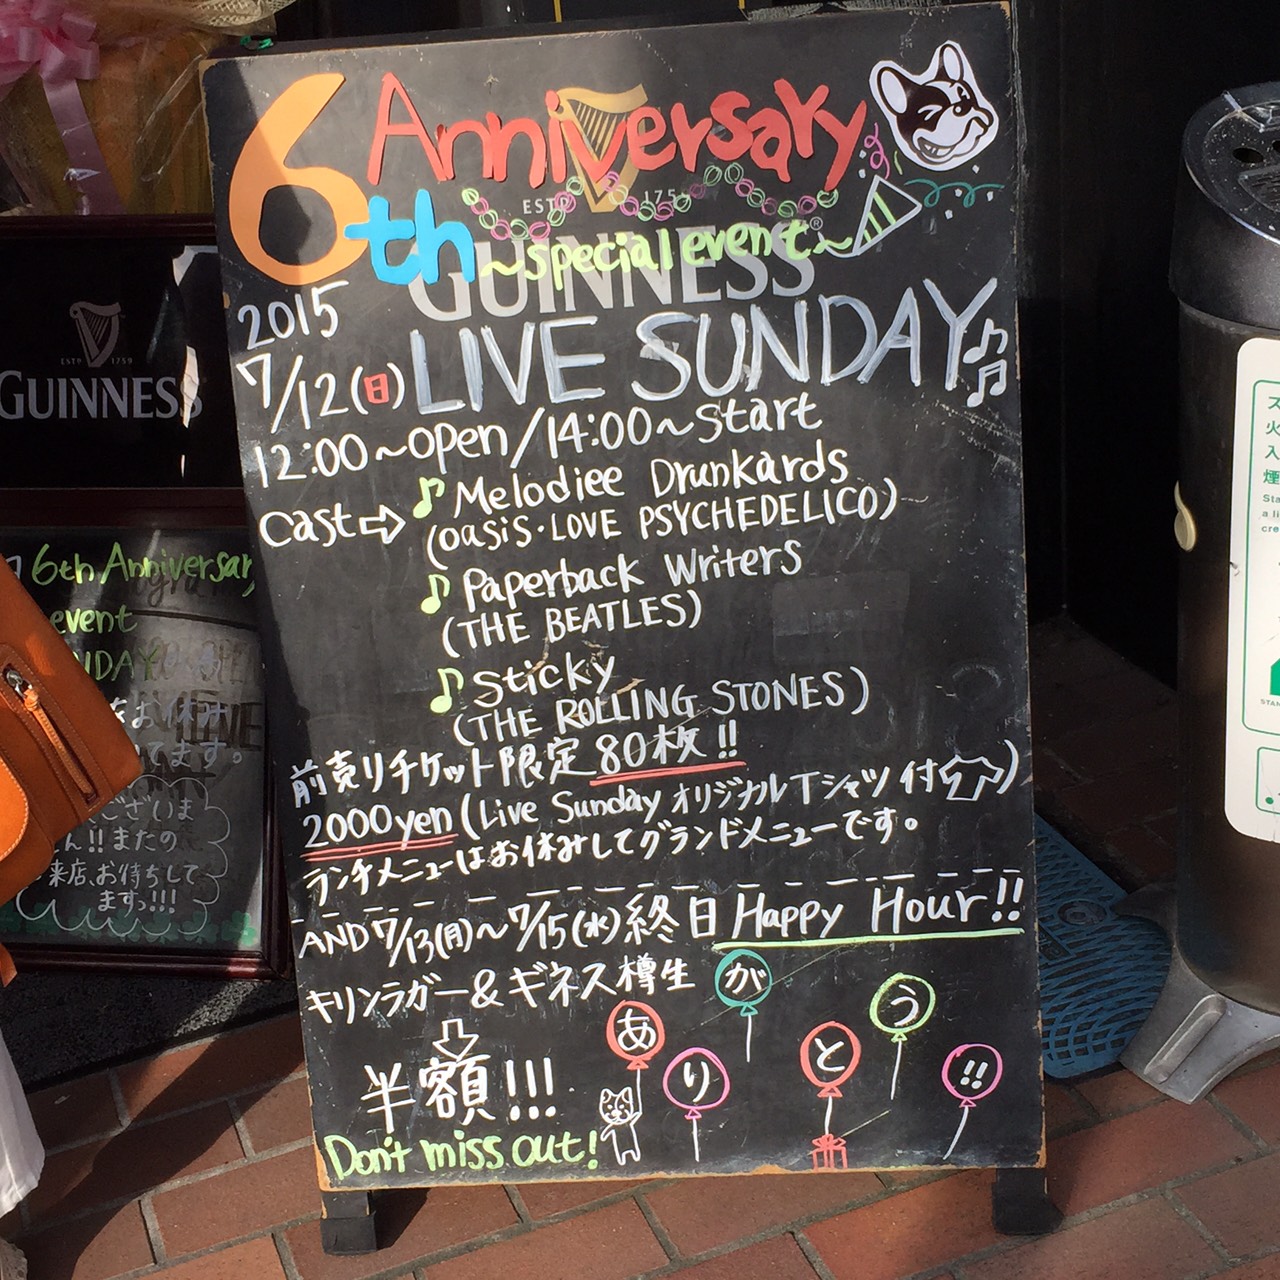 6th Anniversary
ESTD 1759
GUINNESS®
~special event~
2015
7/12(日) LIVE SUNDAY
12:00~open/14:00~start
cast⇨ ♪Melodiee Drunkards
(oasis・LOVE PSYCHEDELICO)
♪Paperback Writers
(THE BEATLES)
♪Sticky
(THE ROLLING STONES)
前売りチケット限定80枚!!
2000yen(Live Sunday オリジナルTシャツ付)
ランチメニューはお休みしてグランドメニューです。
AND 7/13(月)~7/15(水)終日Happy Hour!!
キリンラガー&ギネス樽生
半額!!!
ありがとう!!
Don't miss out!
ESTD 1759
GUINNESS
6th Anniversar
event
NDAY
お休み
てます。
ございま
ん!!またの
来店、お待ちして
ますっ!!!
ス
火
入
煙
Sta
a li
cre
STAN